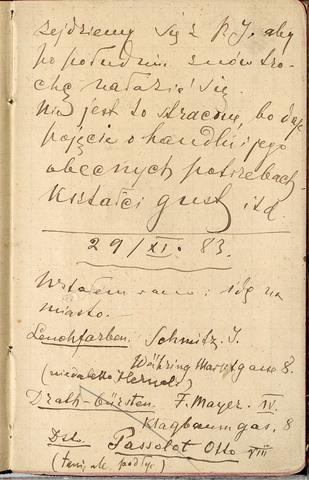 zejdziemy się z P. J. aby
po południu znów tro-
chę nałazić się.
Nie jest to stracone, bo daje
pojęcie o handlu i jego
obecnych potrzebach
Kształci gust itd.
29/XI. 83.
Wstałem rano i idę na
miasto.
Leuchtfarben. Schmitz J.
Währing Marktgasse 8.
(niedaleko Hernals)
Drath-bürsten F. Mayer. IV.
Klagbaumgas. 8
Dto. Passolot Otto VIII
(tani, ale podłe)